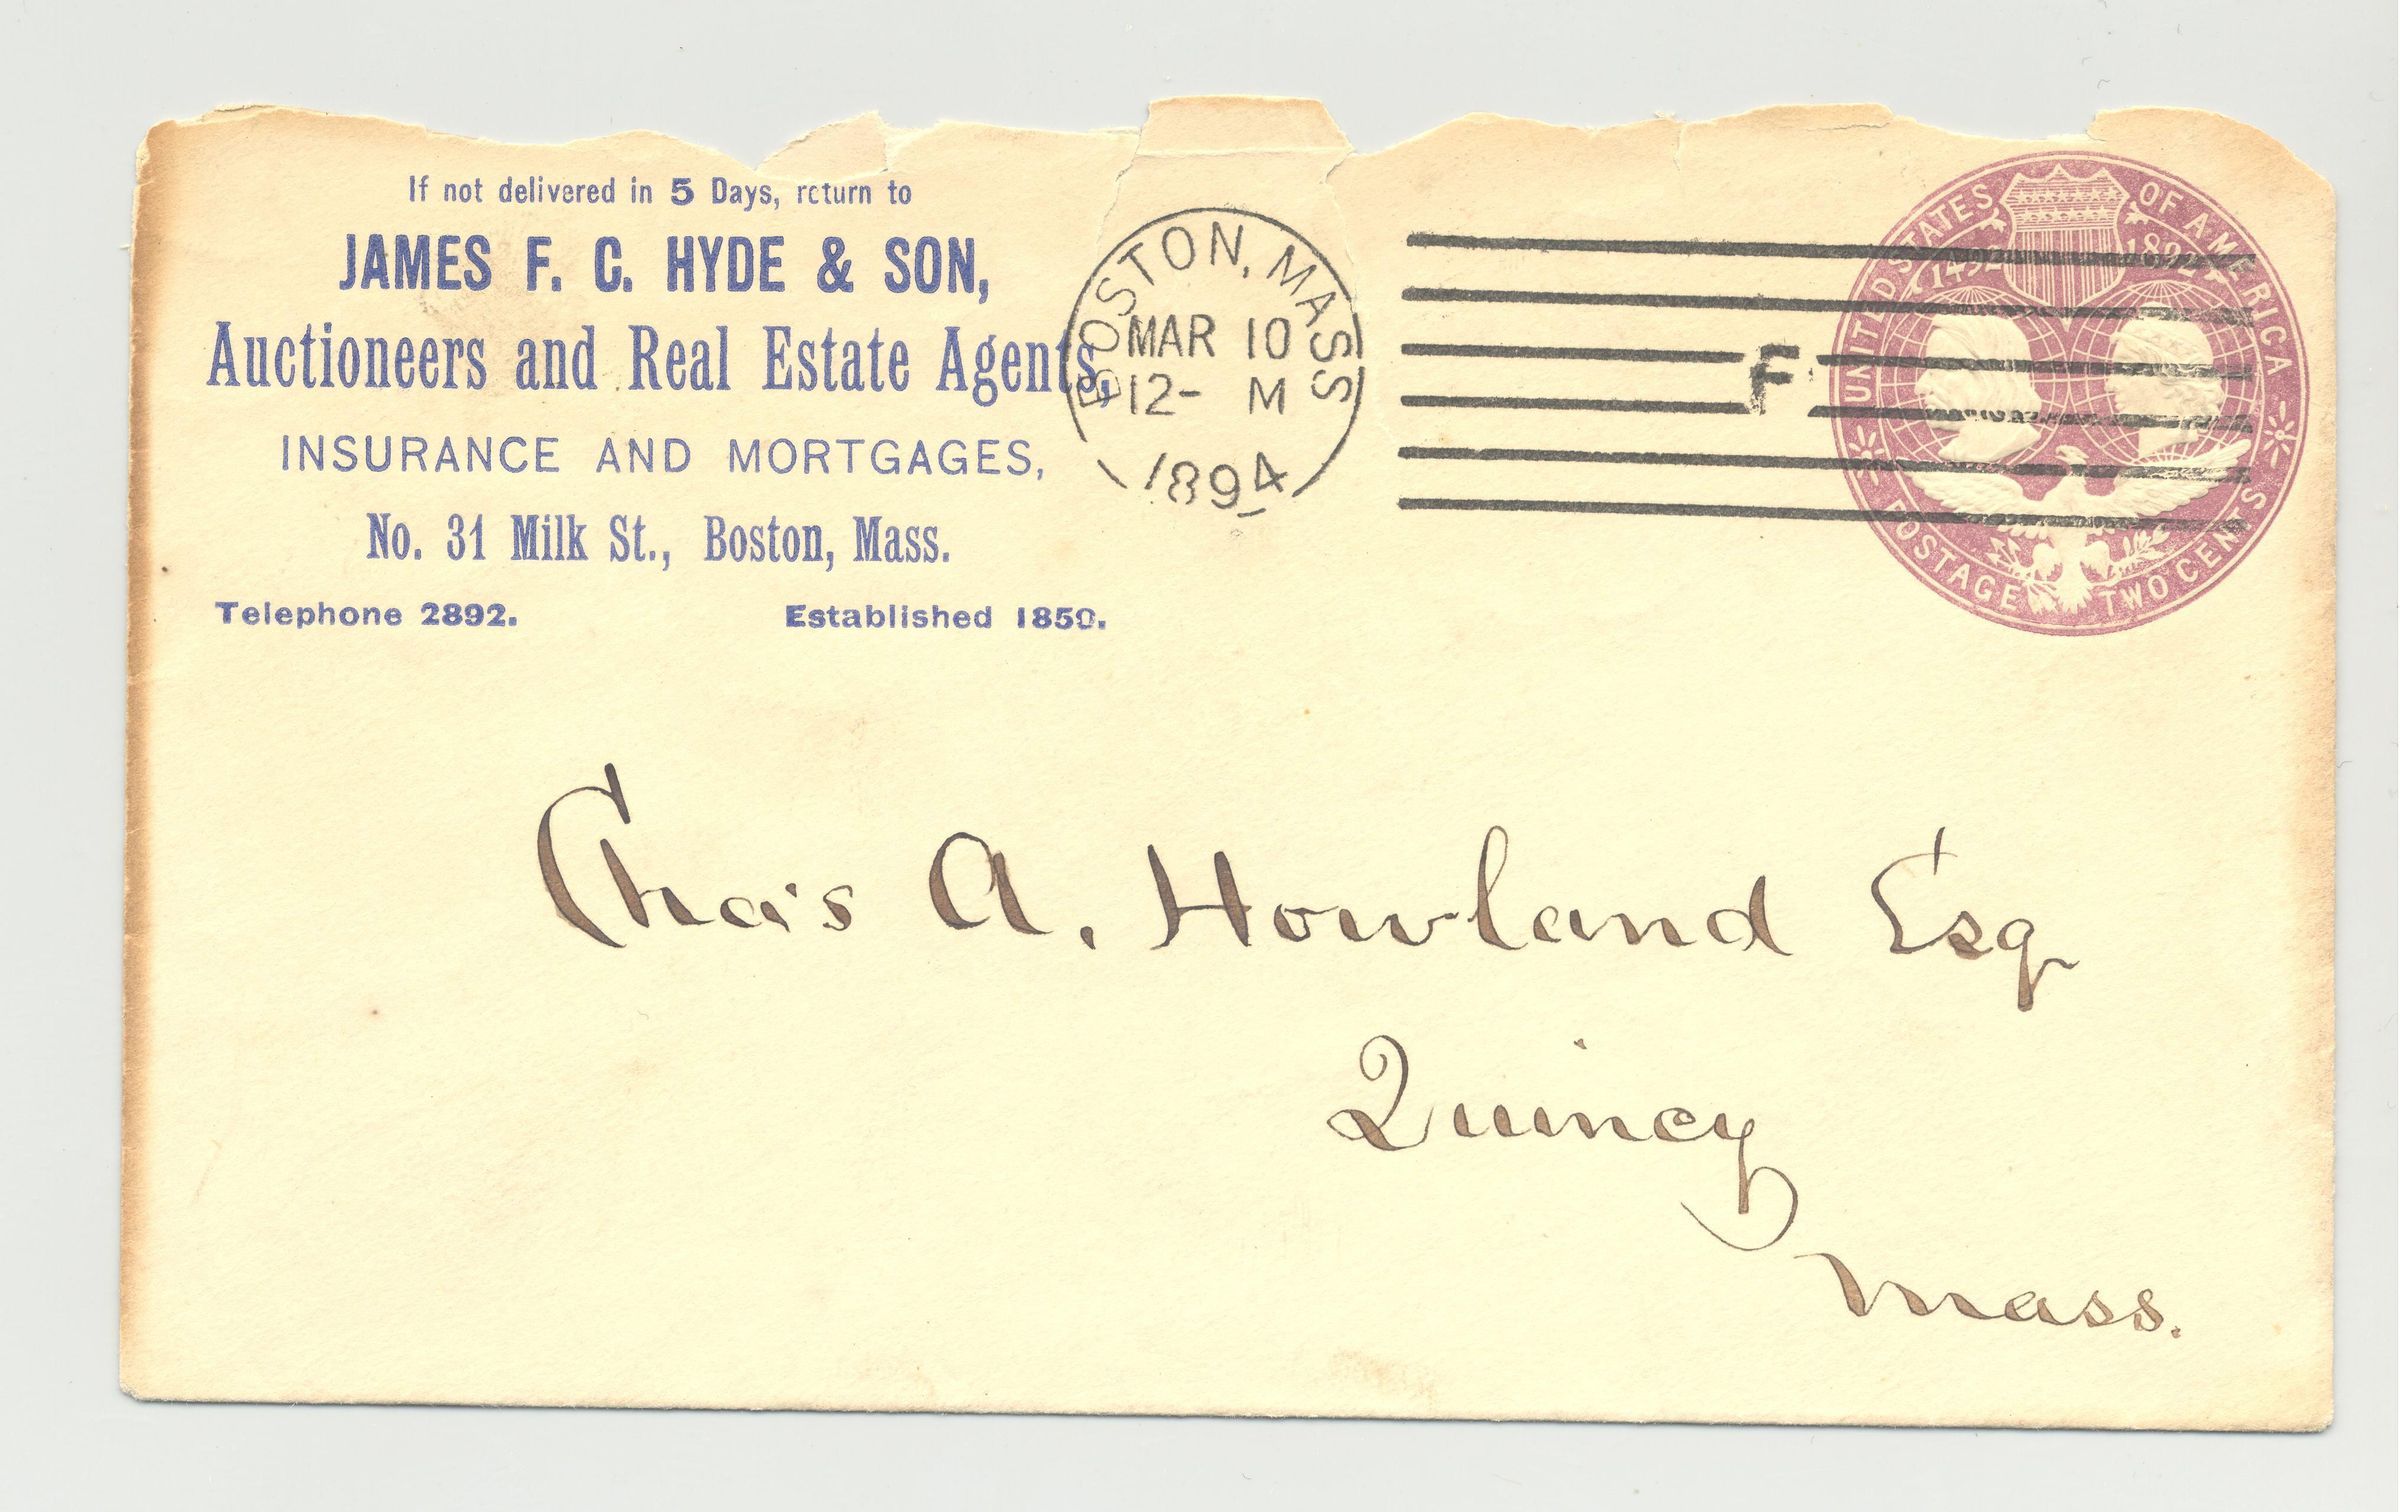 If not delivered in 5 Days, return to
JAMES F. C. HYDE & SON,
Auctioneers and Real Estate Agents,
INSURANCE AND MORTGAGES,
No. 31 Milk St., Boston, Mass.
Telephone 2892. Established 1850.
BOSTON, MASS
MAR 10
12- M
1894
F
UNITED STATES OF AMERICA
1492 1892
POSTAGE TWO CENTS
Chas A. Howland Esq
Quincy
Mass.